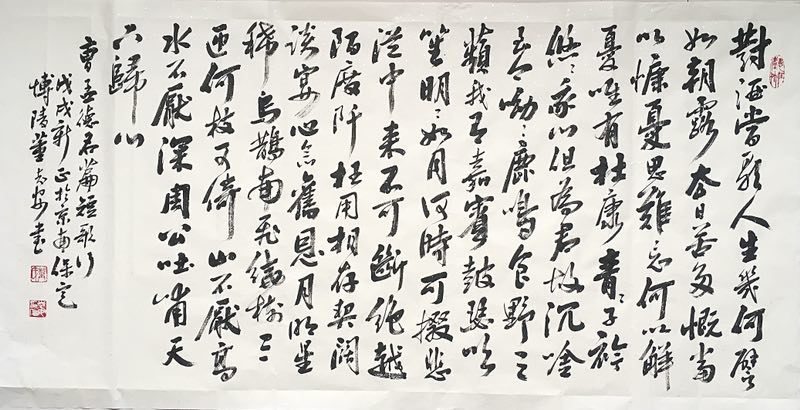 對酒當歌人生幾何譬
如朝露去日苦多慨當
以慷憂思難忘何以解
憂唯有杜康青々子衿
悠々我心但為君故沉吟
至今呦々鹿鳴食野之
蘋我有嘉賓鼓瑟吹
笙明々如月何時可掇悲
從中來不可斷絕越
陌度阡枉用相存契闊
談宴心念舊恩月明星
稀烏鵲南飛繞樹三
匝何枝可倚山不厭高
水不厭深周公吐哺天
下歸心
曹孟德君篇短歌行
戊戌新正於京南保定
博陵董志書